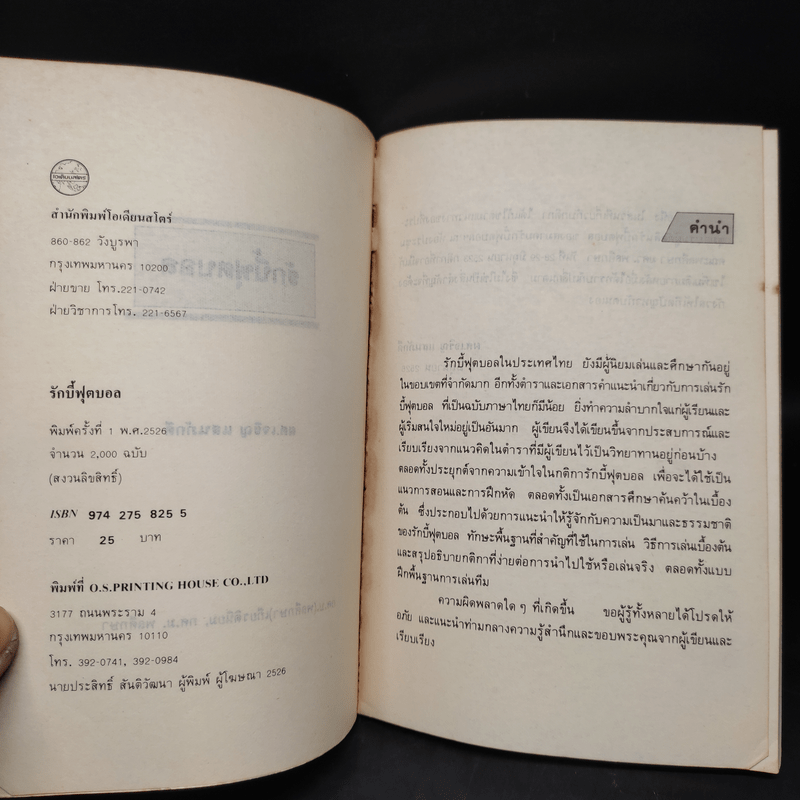 โอเดียนสโตร์
สำนักพิมพ์โอเดียนสโตร์
860-862 วังบูรพา
กรุงเทพมหานคร 10200
ฝ่ายขาย โทร.221-0742
ฝ่ายวิชาการโทร. 221-6567
รักบี้ฟุตบอล
พิมพ์ครั้งที่ 1 พ.ศ.2526
จำนวน 2,000 ฉบับ
(สงวนลิขสิทธิ์)
ISBN 974 275 825 5
ราคา 25 บาท
พิมพ์ที่ O.S.PRINTING HOUSE CO.,LTD
3177 ถนนพระราม 4
กรุงเทพมหานคร 10110
โทร. 392-0741, 392-0984
นายประสิทธิ์ สันติวัฒนา ผู้พิมพ์ ผู้โฆษณา 2526
คำนำ
รักบี้ฟุตบอลในประเทศไทย ยังมีผู้นิยมเล่นและศึกษากันอยู่
ในขอบเขตที่จำกัดมาก อีกทั้งตำราและเอกสารคำแนะนำเกี่ยวกับการเล่นรัก
บี้ฟุตบอล ที่เป็นฉบับภาษาไทยก็มีน้อย ยิ่งทำความลำบากใจแก่ผู้เรียนและ
ผู้เริ่มสนใจใหม่อยู่เป็นอันมาก ผู้เขียนจึงได้เขียนขึ้นจากประสบการณ์และ
เรียบเรียงจากแนวคิดในตำราที่มีผู้เขียนไว้เป็นวิทยาทานอยู่ก่อนบ้าง
ตลอดทั้งประยุกต์จากความเข้าใจในกติการักบี้ฟุตบอล เพื่อจะได้ใช้เป็น
แนวการสอนและการฝึกหัด ตลอดทั้งเป็นเอกสารศึกษาค้นคว้าในเบื้อง
ต้น ซึ่งประกอบไปด้วยการแนะนำให้รู้จักกับความเป็นมาและธรรมชาติ
ของรักบี้ฟุตบอล ทักษะพื้นฐานที่สำคัญที่ใช้ในการเล่น วิธีการเล่นเบื้องต้น
และสรุปอธิบายกติกาที่ง่ายต่อการนำไปใช้หรือเล่นจริง ตลอดทั้งแบบ
ฝึกพื้นฐานการเล่นทีม
ความผิดพลาดใด ๆ ที่เกิดขึ้น ขอผู้รู้ทั้งหลายได้โปรดให้
อภัย และแนะนำท่ามกลางความรู้สำนึกและขอบพระคุณจากผู้เขียนและ
เรียบเรียง